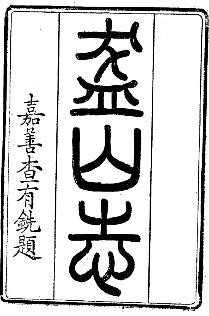 盋山志
嘉善查有銑題